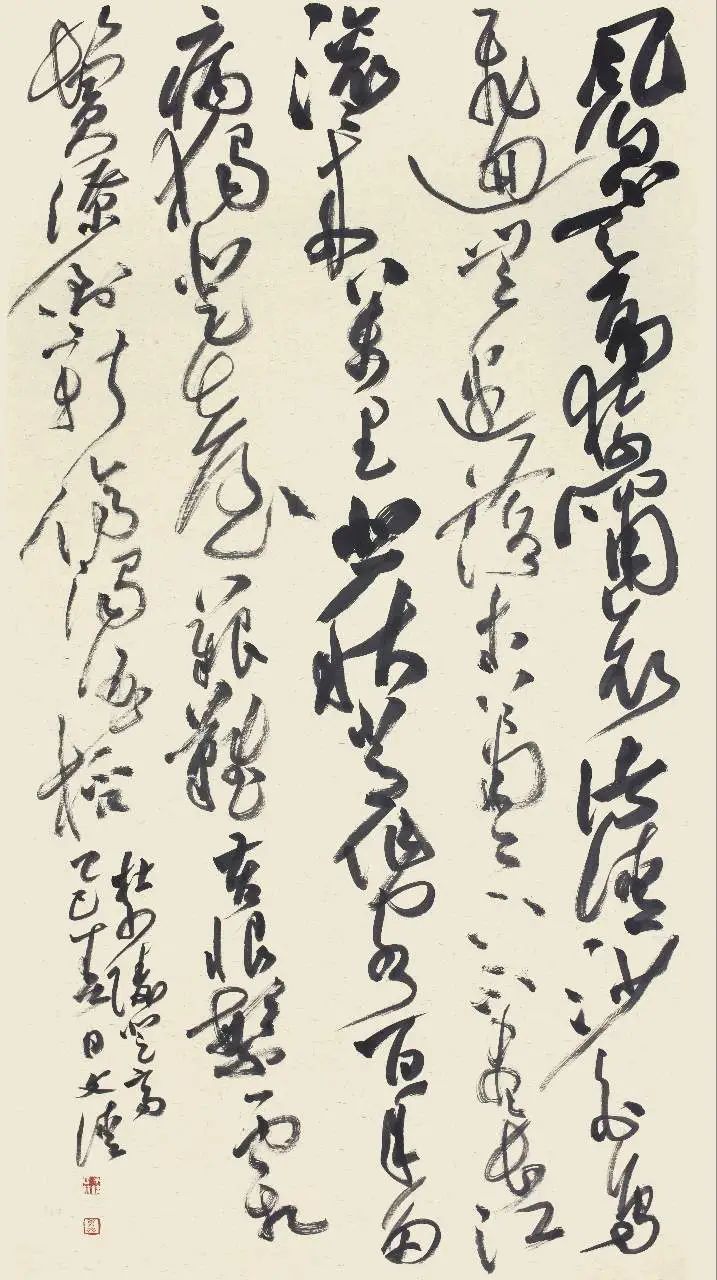 風急天高猿嘯哀渚清沙白鳥
飛迴無邊落木蕭々下不盡長江
滾々來萬里悲秋常作客百年多
病獨登臺艱難苦恨繁霜
鬢潦倒新停濁酒杯
杜少陵登高
乙巳春日文清